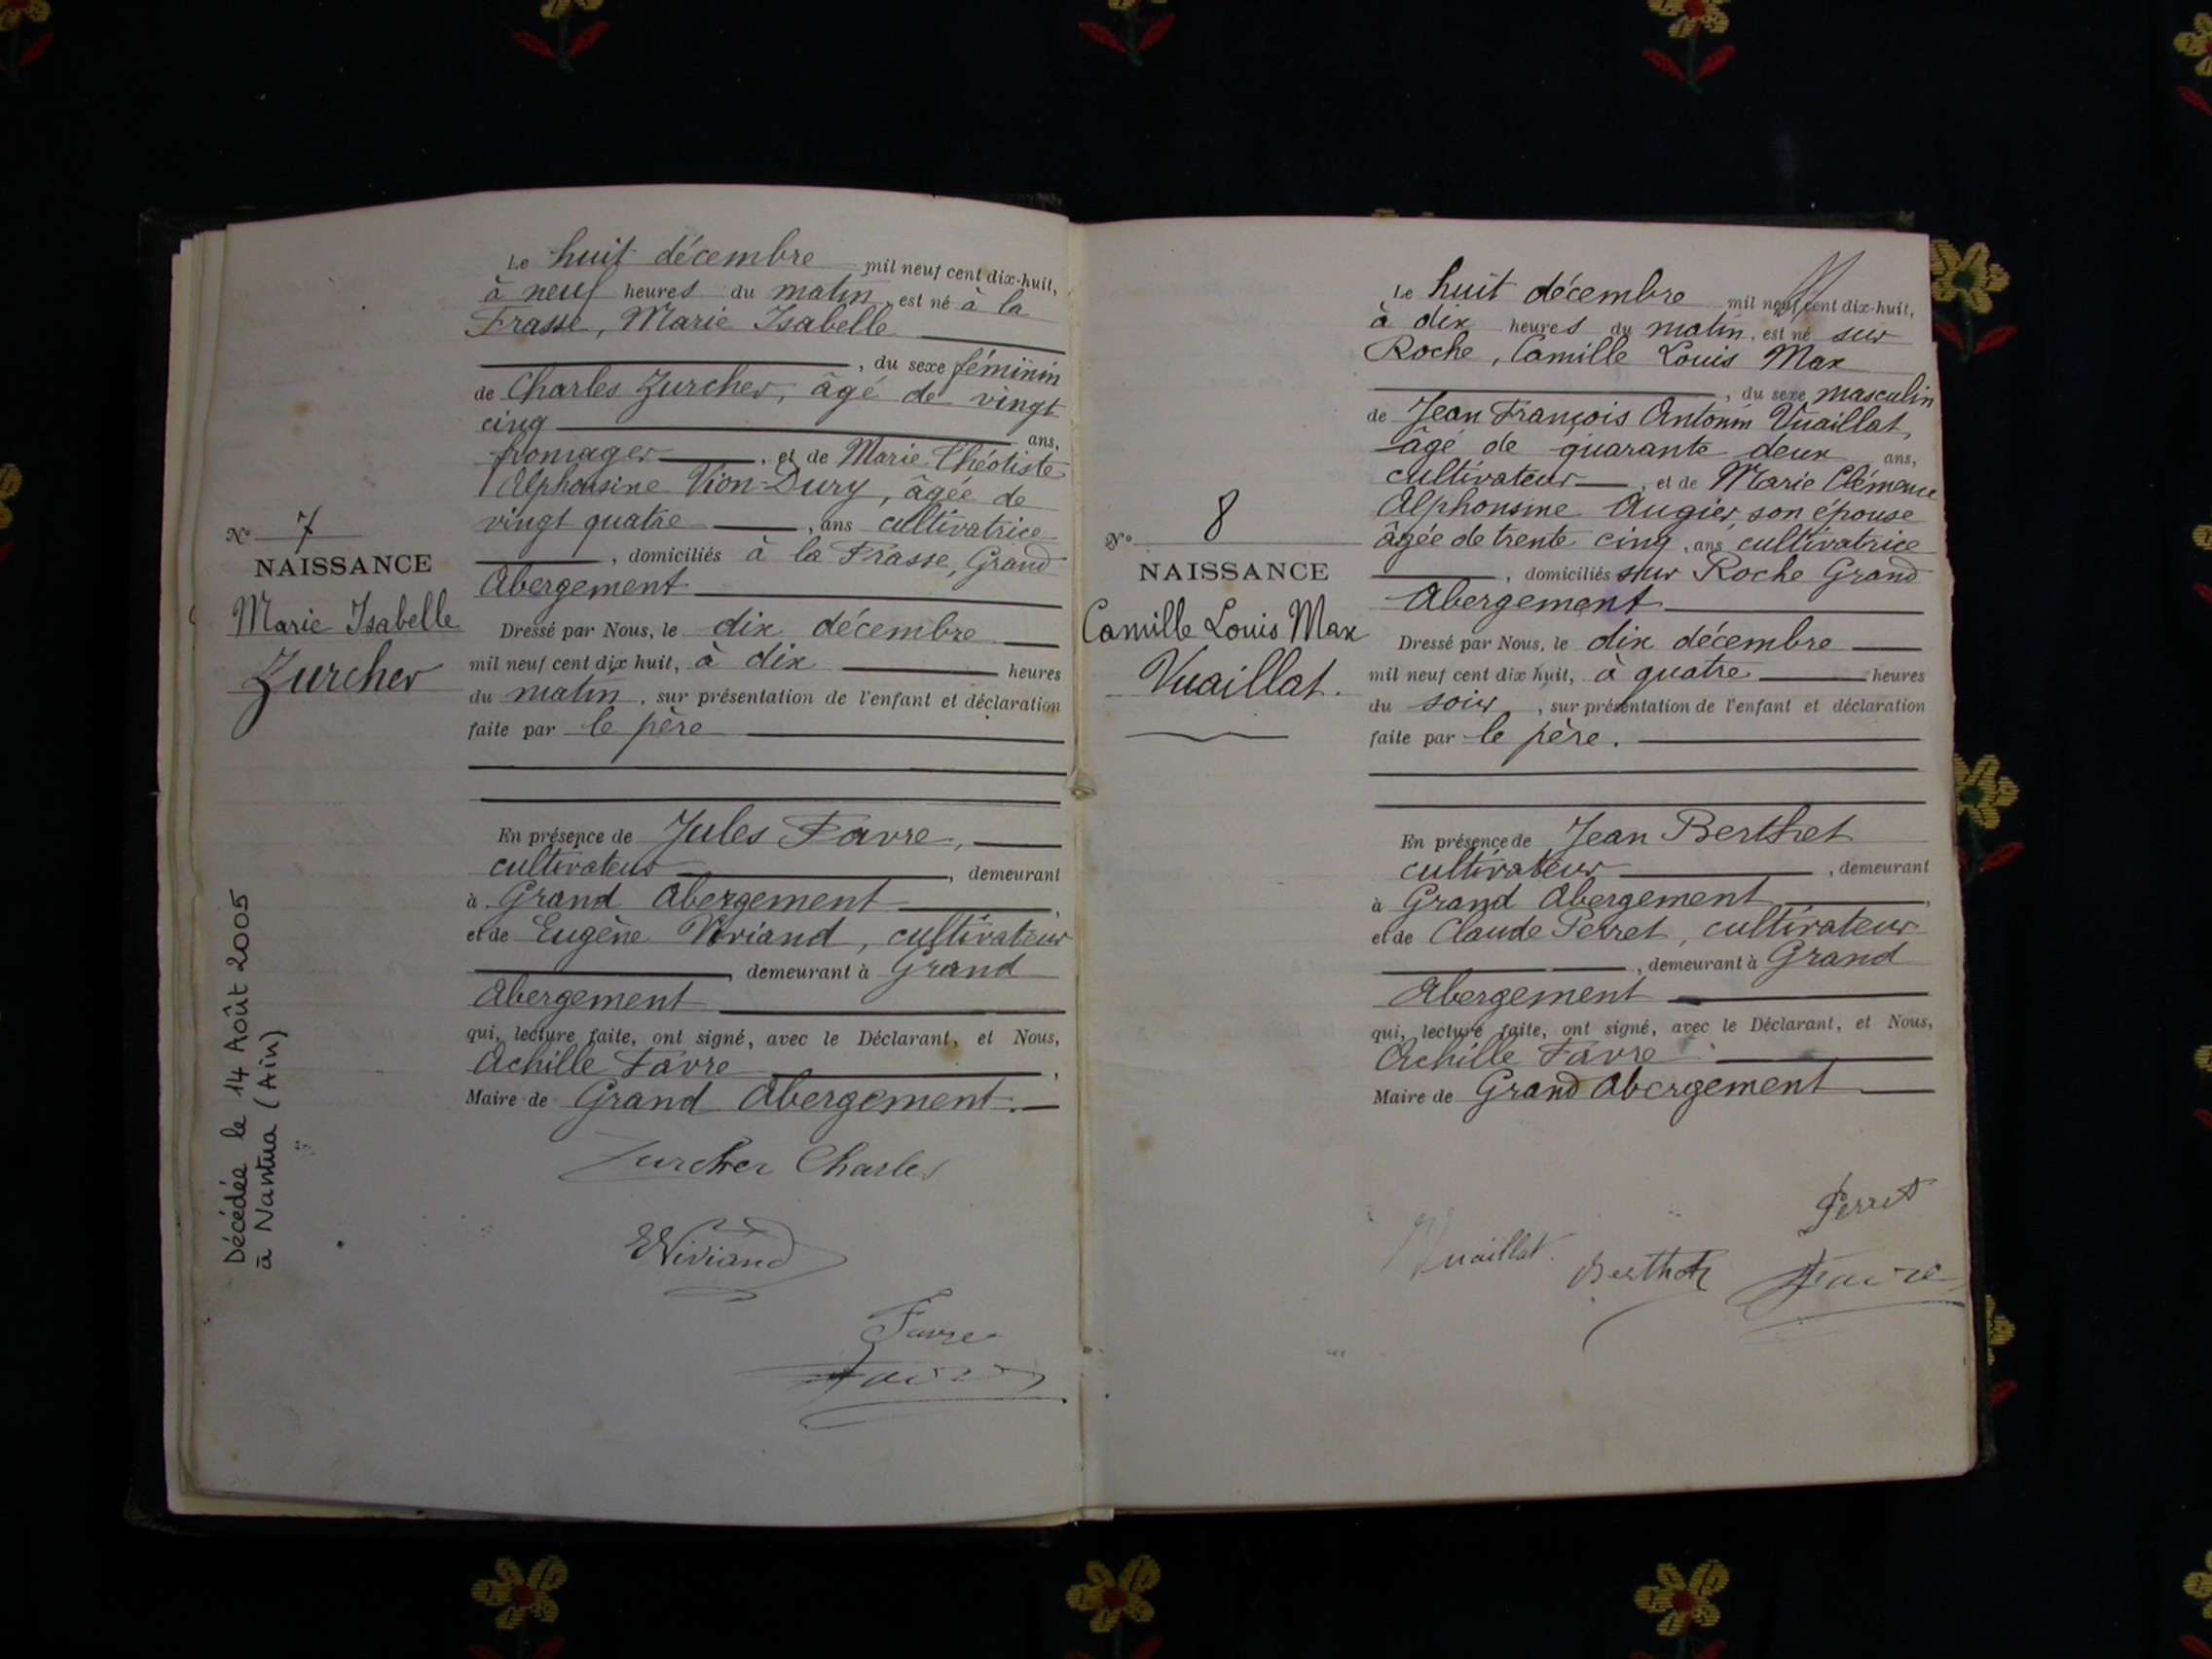 Le huit décembre mil neuf cent dix-huit,
à neuf heures du matin, est né à la
Frasse, Marie Isabelle
, du sexe féminin
de Charles Zurcher, âgé de vingt
cinq ans,
fromager, et de Marie Théotiste
Alphonsine Vion-Dury, âgée de
vingt quatre, ans cultivatrice
, domiciliés à la Frasse, Grand
Abergement
Dressé par Nous, le dix décembre
mil neuf cent dix huit, à dix heures
du matin, sur présentation de l'enfant et déclaration
faite par le père
En présence de Jules Favre,
cultivateur, demeurant
à Grand Abergement,
et de Eugène Viviand, cultivateur
, demeurant à Grand
Abergement
qui, lecture faite, ont signé, avec le Déclarant, et Nous,
Achille Favre,
Maire de Grand Abergement.
Zurcher Charles
EViviand
Favre
Favre
N° 7
NAISSANCE
Marie Isabelle
Zurcher
Décédée le 14 Août 2005
à Nantua (Ain)
Le huit décembre mil neuf cent dix-huit,
à dix heures du matin, est né sur
Roche, Camille Louis Max
, du sexe masculin
de Jean François Antonin Vuaillat,
âgé de quarante deux ans,
cultivateur, et de Marie Clémence
Alphonsine Augier, son épouse
âgée de trente cinq, ans cultivatrice
, domiciliés sur Roche Grand
Abergement
Dressé par Nous, le dix décembre
mil neuf cent dix huit, à quatre heures
du soir, sur présentation de l'enfant et déclaration
faite par le père.
En présence de Jean Berthet
cultivateur, demeurant
à Grand Abergement,
et de Claude Perret, cultivateur
, demeurant à Grand
Abergement
qui, lecture faite, ont signé, avec le Déclarant, et Nous,
Achille Favre
Maire de Grand Abergement
Perret
Vuaillat.
Berthet
Favre
N° 8
NAISSANCE
Camille Louis Max
Vuaillat.